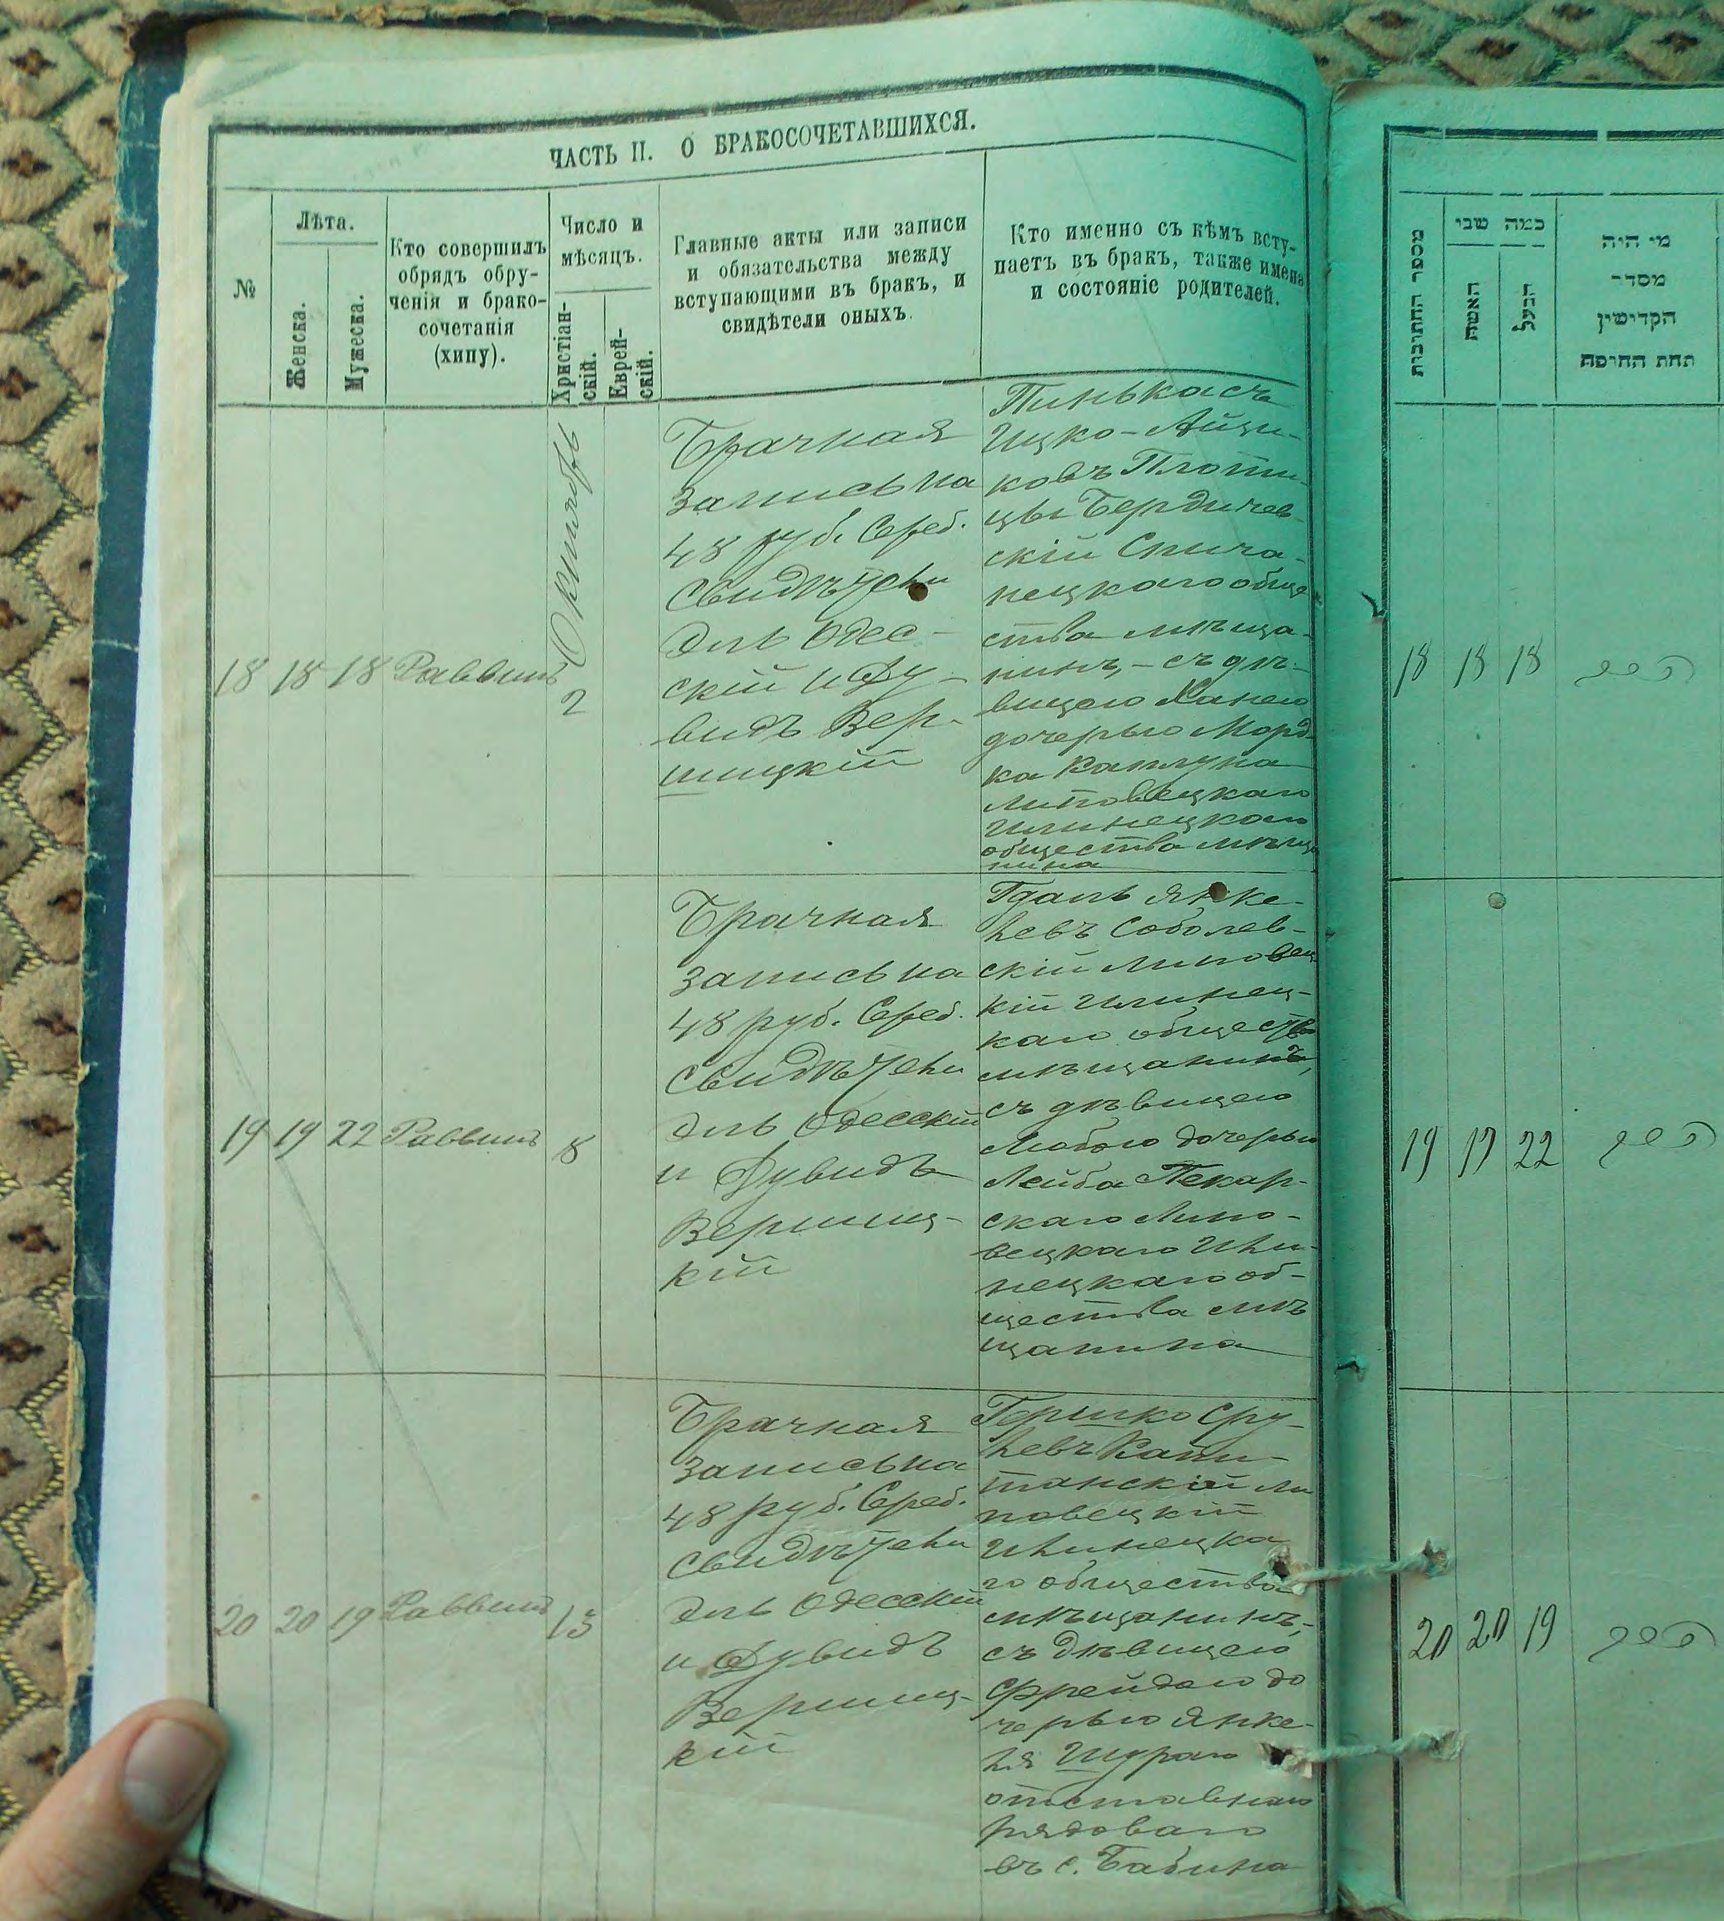 ЧАСТЬ II. О БРАКОСОЧЕТАВШИХСЯ.
№
Лѣта.
Женска.
Мужеска.
Кто совершилъ
обрядъ обру-
ченія и брако-
сочетанія
(хипу).
Число и
мѣсяцъ.
Христіан-
скій.
Еврей-
скій.
Главные акты или записи
и обязательства между
вступающими въ бракъ, и
свидѣтели оныхъ.
Кто именно съ кѣмъ всту-
паетъ въ бракъ, также имена
и состояніе родителей.
18 18 18 Раввинъ
Октябрь
2
Брачная
запись на
48 руб. Сереб.
Свидѣтели
Эль Одес-
скій и Ду-
видъ Вер-
шицкій
Пинькасъ
Ицко-Айзи-
ковъ Плоти-
цы Бердичев
скій Спича-
нецкаго обще
ства мѣща-
нинъ, - съ дѣ-
вицею Ханею
дочерью Морд
ка Каплуна
Липовецкаго
Илинецкаго
общества мѣща
нина
19 19 22 Раввинъ
8
Брачная
запись на
48 руб. Сереб.
Свидѣтели
Эль Одесскій
и Дувидъ
Вершиц-
кій
Янке-
левъ Соболев-
скій Липовец
кій Илинец-
каго общества
мѣщанинъ,
съ дѣвицею
Любою дочерью
Лейба Пекар-
скаго Липо-
вецкаго Или-
нецкаго об-
щества мѣ
щанина
20 20 19 Раввинъ
13
Брачная
запись на
48 руб. Сереб.
Свидѣтели
Эль Одесскій
и Дувидъ
Вершиц-
кій
Гершко Сру-
левъ Капи-
танскій Ли
повецкій
Илинецка
го общества
мѣщанинъ,
съ дѣвицею
Фрейдею до
черью Янке-
ля
отставнаго
рядоваго
въ с. Бабина
מספר החתובות
כמה שני
האשה
הבעל
מי היה
מסדר
הקדישין
תחת החיפה
18 18 18
19 19 22
20 20 19